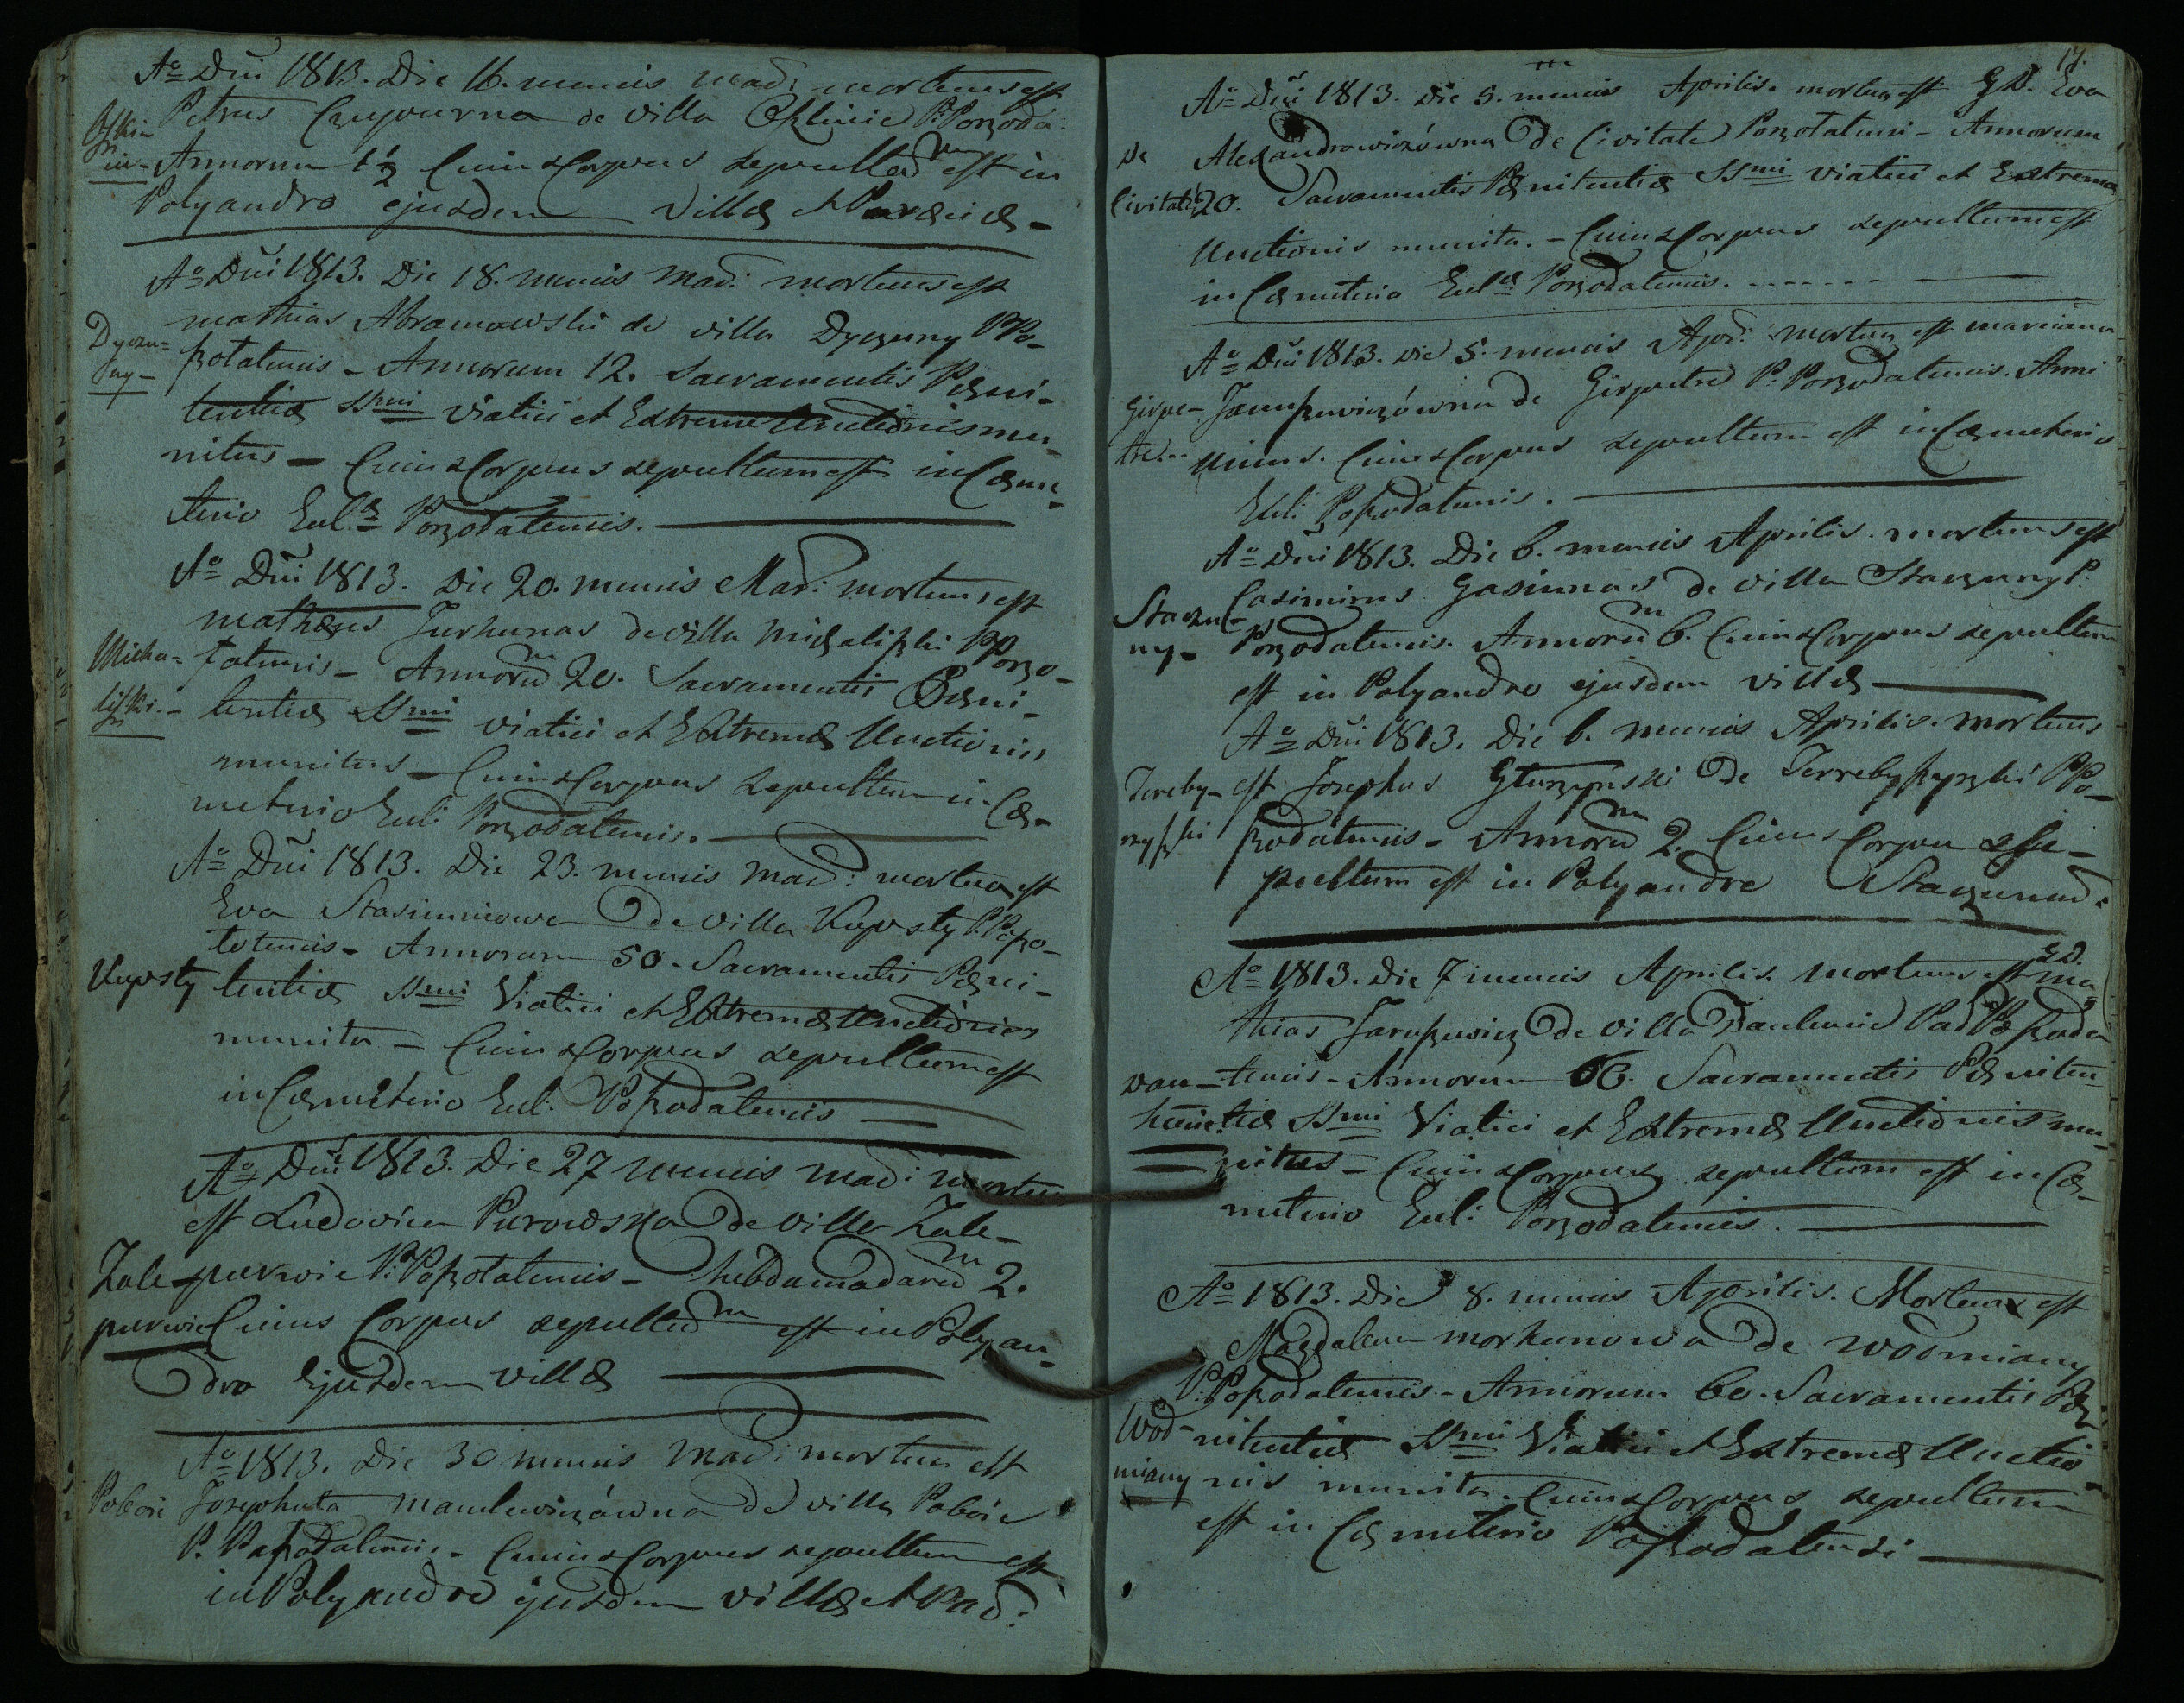 Aº Dni 1813. Die 16. mensis Madi mortuus est
Petrus Czyżurna de villa P. Poszoda:
Annorum 1½ Cujus Corpus sepultum est in
Polyandro ejusdem Villæ
Aº Dni 1813. Die 18. mensis Mad: mortuus est
Mathias Abramowski de villa Dyczuny P Po-
Dyczu=
ny-
szotatensis - Annorum 12. Sacramentis Pœni-
tentiæ SSmi Viatici et Extremæ Unctionis mu-
nitus - Cujus Corpus sepultum est in Cœme-
terio Eccl:æ Poszodatensis.
Aº Dni 1813. Die 20. mensis Mad: mortuus est
Mathæus Jurkunas de villa Michaliszki P Poszo-
Micha=
liszki.-
tatensis - Annorum 20. Sacramentis Pœni-
tentiæ SSmi Viatici et Extremæ Unctionis
munitus - Cujus Corpus sepultum in Cœ-
meterio Eccl: Poszodatensis.
Aº Dni 1813. Die 23. mensis Mad: mortua est
Eva Stasiuniowa de villa Kupsty P. Poszo-
totensis - Annorum 50. Sacramentis Pœni-
Kupsty tentiæ SSmi Viatici et Extremæ Unctionis
munita - Cujus Corpus sepultum est
in Cœmeterio Eccl. Poszodatensis
Aº Dni 1813. Die 27 mensis Mad: mortua
est Ludovica Purowska de villa Zale-
Zale-
purwie P. Poszotatensis - hebdomadarum 2.
purwie Cujus Corpus sepultum est in Polyan-
dro Ejusdem Villæ
Aº 1813. Die 30 mensis Mad: mortua est
Poboie Josephata Mankiewiczówna de villa Poboie
P. Poszodatensis - Cujus Corpus sepultum est
in Polyandro ejusdem villæ
17.
Aº Dni 1813. Die 5. mensis Aprilis. mortua est G D. Eva
Alexandrowiczówna de Civitate Poszotatensi - Annorum
De
Civitate
20. Sacramentis Pœnitentiæ SSmi Viatici et Extremæ
Unctionis munita. - Cujus Corpus sepultum est
in Cœmeterio Eccl:æ Poszodatensis.
Aº Dni 1813. Die 5. mensis Apri: mortua est Marcianna
Girpe-
tre..
Januszewiczówna de Girpetre P. Poszodatensis. Anni
Unius. Cujus Corpus sepultum est in Cœmeterio
Eccl: Poszodatensis.
Aº Dni 1813. Die 6. mensis Aprilis. mortuus est
Casimirus Gasiunas de villa Staczuny P.
Staczu-
ny-
Poszodatensis. Annorum 6. Cujus Corpus sepultum
est in Polyandro ejusdem villæ
Aº Dni 1813. Die 6. mensis Aprilis. mortuus
Tereby-
est Josephus Głuszynski de Terrebyszyszki P Po-
szodatensis - Annorum 2. Cujus Corpus se-
pultum est in Polyandro
Aº 1813. Die 7 mensis Aprilis. Mortuus est G D. Ma-
thias Januszewicz de villa Daukunie Par Poszoda
tensis - Annorum 66. Sacramentis Pœniten-
tiæ SSmi Viatici et Extremæ Unctionis mu-
nitus - Cujus Corpus sepultum est in Cœ-
meterio Eccl: Poszodatensis.
Aº 1813. Die 8. mensis Aprilis. Mortua est
Magdalena Morkunowa de Wodmiany
P. Poszodatensis - Annorum 60. Sacramentis Pœ-
Wod-
miany
nitentiæ SSmi Viatici et Extremæ Unctio-
nis munita. Cujus Corpus sepultum
est in Cœmeterio Poszodatensi